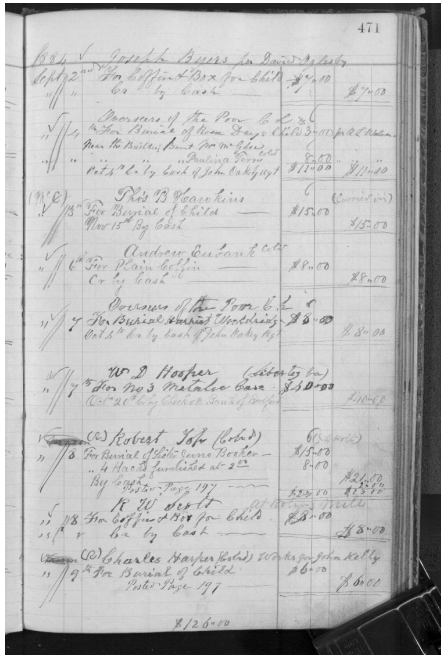 471
1884 Joseph Byers per David
Sept 2nd For Coffin & Box for Child $7.00
" " Cr by Cash $7.00
Overseers of the Poor C. L. &
" 4th For Burial of Child 3.00 for
Near the Built
" " " " " 8.00
Oct 4th Cr by Cash of John Oakey Agt $11.00 $11.00
(C) Thos B Hawkins
" 3rd For Burial of Child $15.00
Nov 15th By Cash $15.00
Andrew Eubank Cold
" 6th For Plain Coffin $8.00
Cr by Cash $8.00
Overseers of the Poor C. L.
" 7 For Burial Harriet Wooldridge $8.00
Oct 4th Cr by Cash of John Oakey Agt $8.00
W. D. Hooper (Liberty Va)
" 7th For No 3 Metalic Case $40.00
20th by Check Bank of $40.00
(C) Robert (Cold)
" 8 For Burial of June Booker $15.00
" 4 Hacks furnished at 2.00 8.00
By Cash
Poster Page 197
R. W. Scott At Mill
" 8 For Coffin & Box for Child $8.00
" " Cr by Cash $8.00
(C) Charles Harper (Cold) Works for John Kelly
" 9th For Burial of Child $6.00
Poster Page 197 $6.00
$126.00